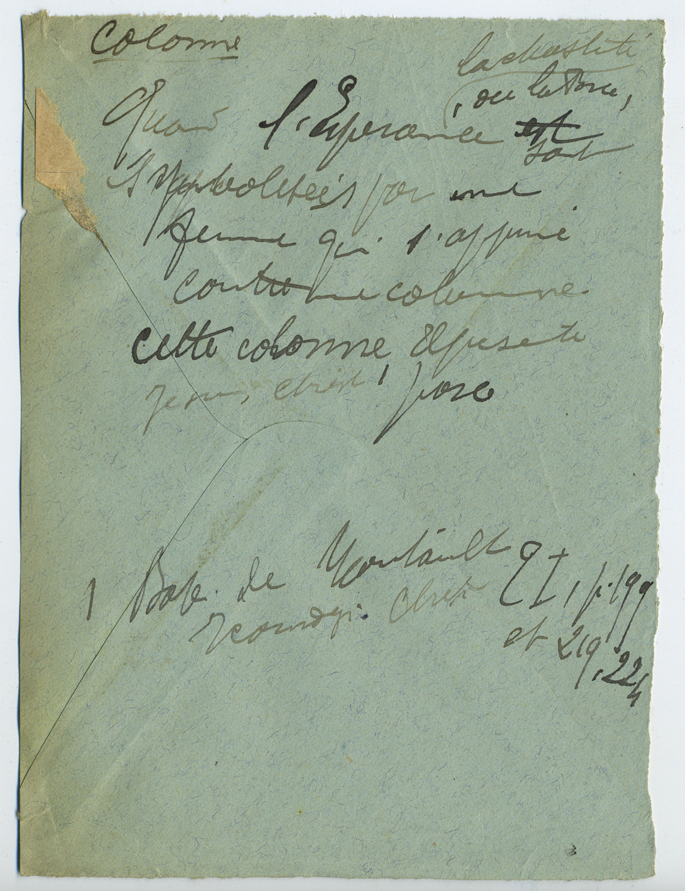 Colonne
la chasteté
, ou la Force,
Quand l'Espérance est
sont
symbolisées par une
femme qui s'appuie
contre une colonne
cette colonne représente
Jesus Christ 1
1 Barb. de Montault
Iconogr. Chret
T I, p. 199
et 219, 224